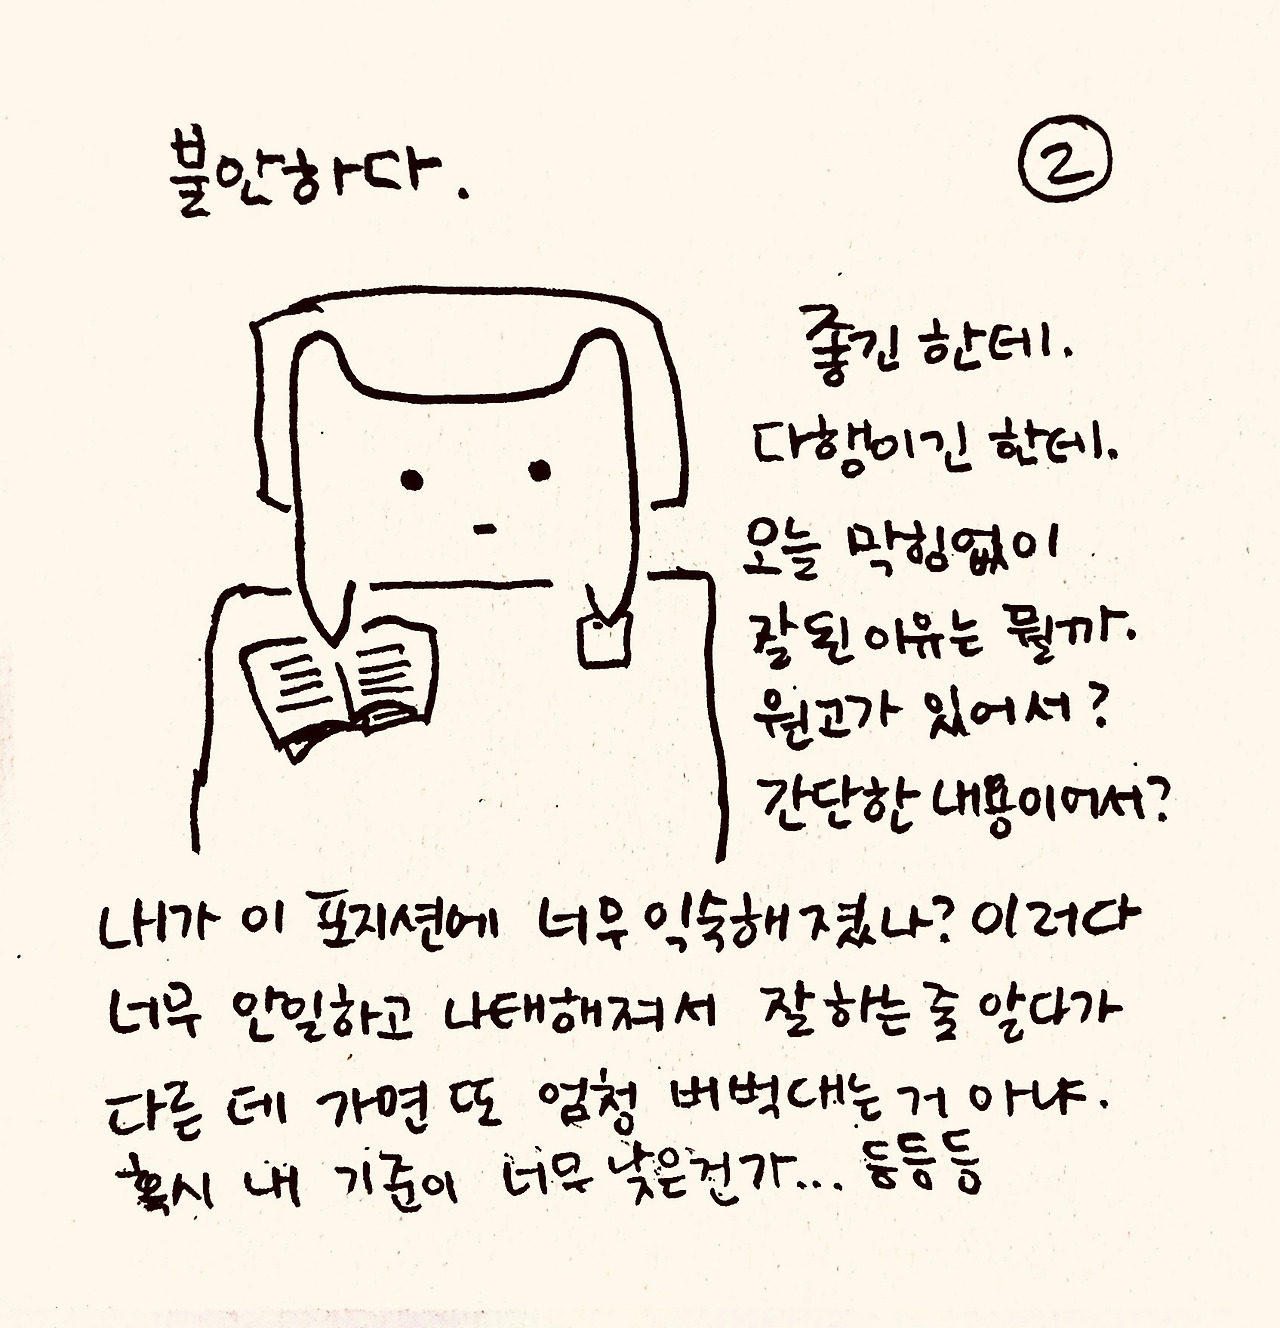 불안하다.
②
좋긴 한데.
다행이긴 한데.
오늘 막힘없이
잘 된 이유는 뭘까.
원고가 있어서?
간단한 내용이어서?
내가 이 포지션에 너무 익숙해졌나? 이러다
너무 안일하고 나태해져서 잘 하는 줄 알다가
다른 데 가면 또 엄청 버벅대는 거 아냐.
혹시 내 기준이 너무 낮은건가... 등등등